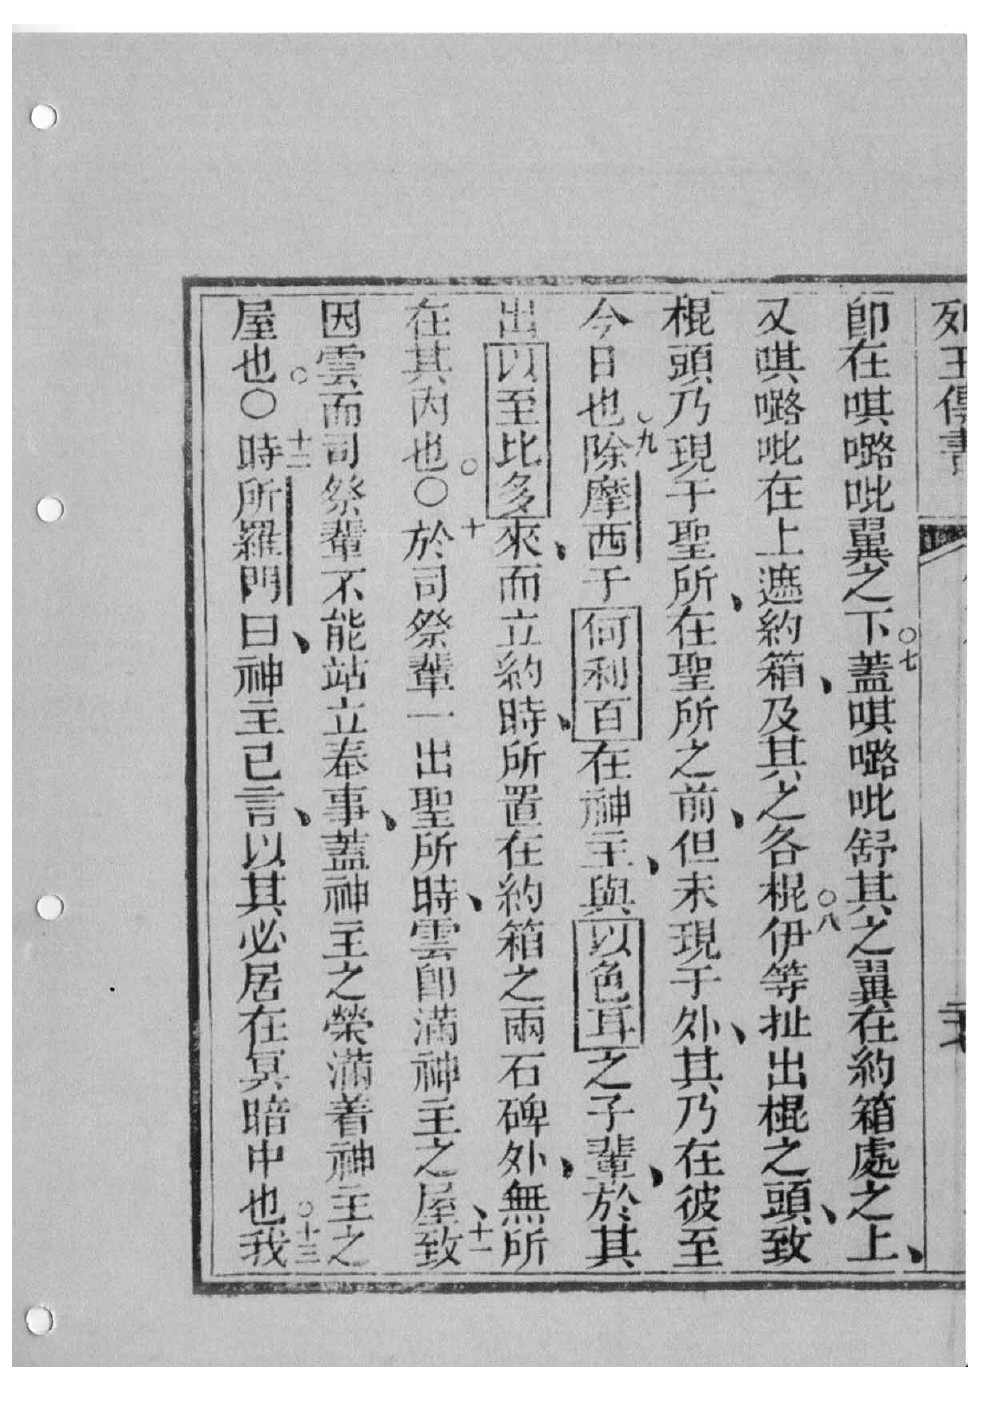 列王傳書
卽在唭嚕吡翼之下○七蓋唭嚕吡舒其之翼在約箱處之上、
又唭嚕吡在上遮約箱、及其之各棍○八伊等扯出棍之頭、致
棍頭乃現于聖所、在聖所之前、但未現于外、其乃在彼至
今日也○九除摩西于何利百在神主、與以色耳之子輩、於其
出以至比多來、而立約時、所置在約箱之兩石碑外、無所
在其內也○○十於司祭輩一出聖所時、雲卽滿神主之屋、十一致
因雲而司祭輩不能站立奉事、蓋神主之榮滿着神主之
屋也○○十二時所羅門曰、神主已言、以其必居在冥暗中也○十三我